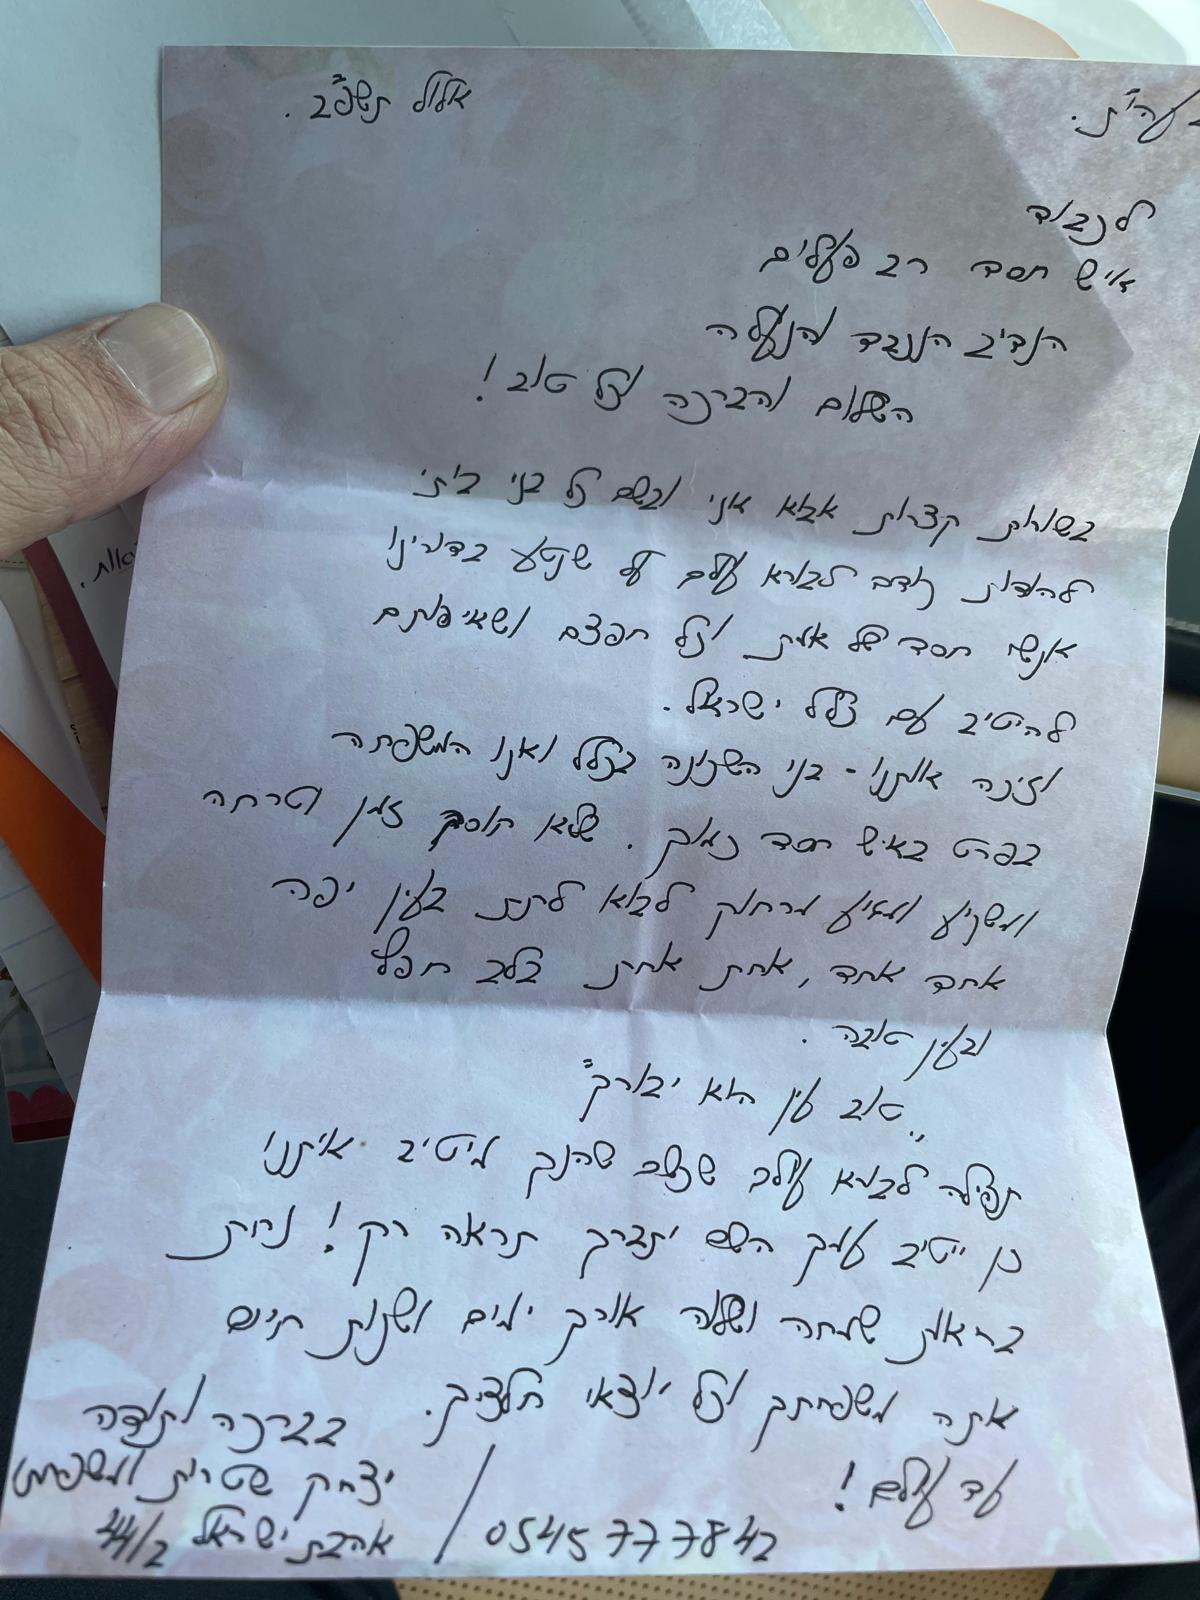 בעה"ת. אלול תשפ"ב.
לכבוד
איש חסד רב פעלים
הנדיב הנכבד והנעלה
השלום והברכה וכל טוב!
בשורות קצרות אבוא אני ובשם כל בני ביתי
להודות לבורא עולם על שנטע בדורינו
אנשי חסד של אמת וכל חפצם ושאיפותם
להיטיב עם כלל ישראל.
וזיכה אותנו - בני השכונה בכלל ואנו המשפחה
בפרט באיש חסד כמוך. שלא חוסך זמן וטרחה
ומשקיע ומגיע מרחוק לבוא לתת בעין יפה
אחד אחד, אחת אחת בלב חפץ
ובעין טובה.
"טוב עין הוא יבורך"
תפילה לבורא עולם שכשם שהנך מיטיב איתנו
כן ייטיב עמך השם יתברך תראה רק! נחת
בריאות שמחה ושלוה אורך ימים ושנות חיים
אתה משפחתך וכל יוצאי חלציך.
עד עולם!
בברכה ותודה
יצחק שטרית ומשפחתו
אהבת ישראל 44/2 / 0545777842